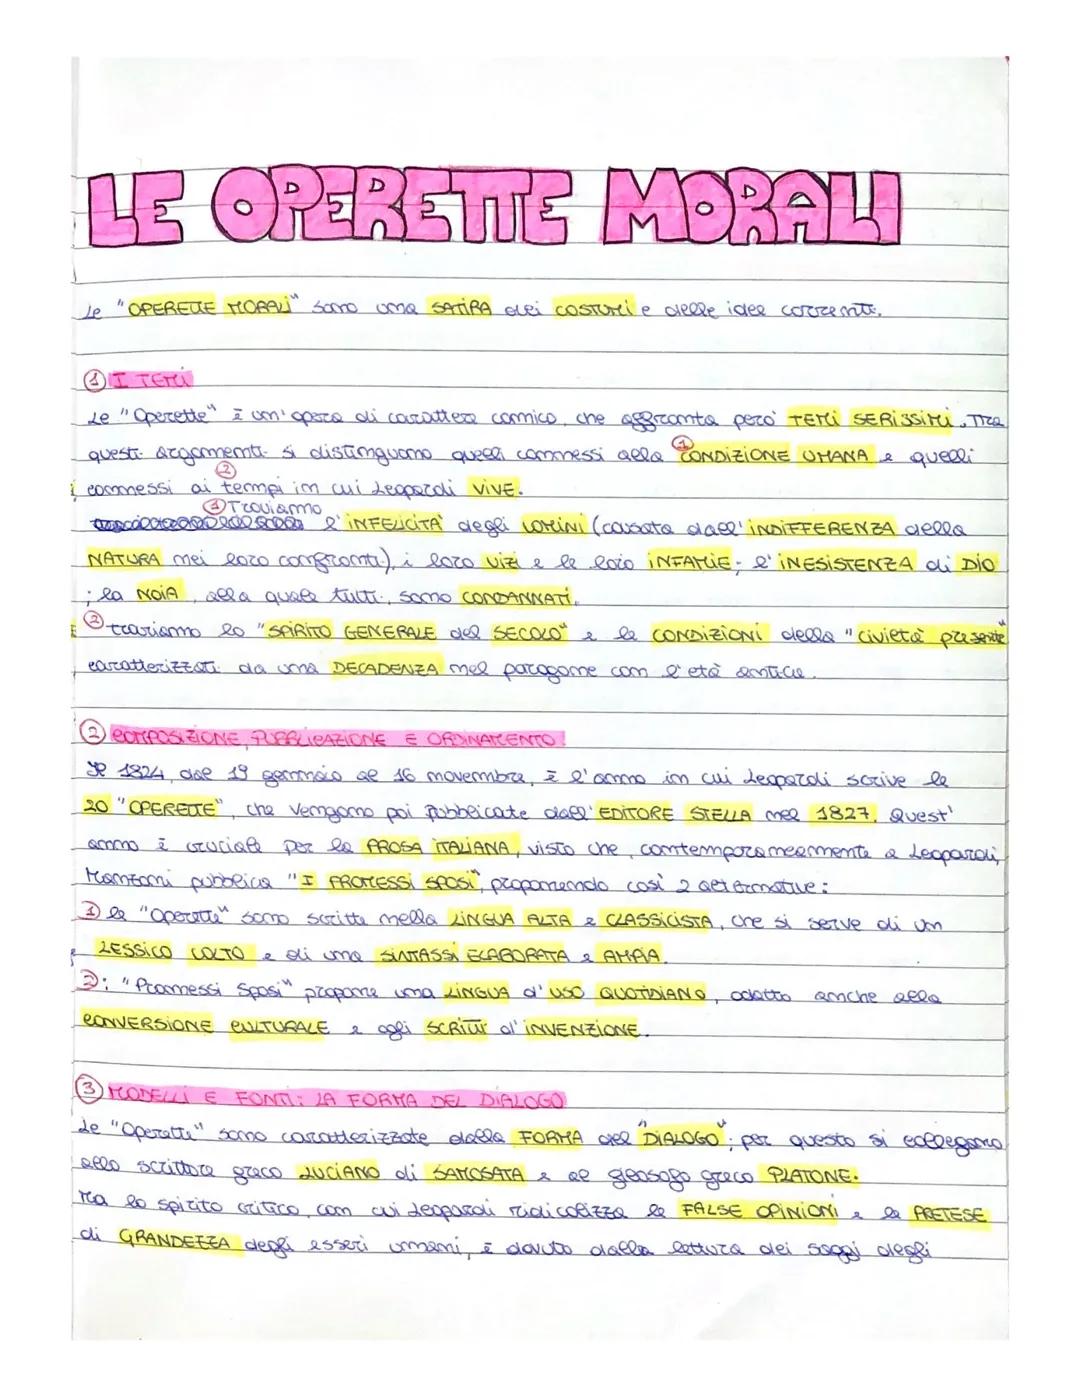 LE OPERETTE MORALI
Le "OPERETTE MORALI" sono una SATIRA dei COSTUMI e delle idee correnti.
① I TEMI
Le "Operette" è un'opera di carattere comico, che affronta però TEMI SERISSIMI. Tra
questi argomenti si distinguono quelli connessi alla ① CONDIZIONE UMANA e quelli
connessi ai ② tempi in cui Leopardi VIVE.
① Troviamo
l'INFELICITÀ degli UOMINI (causata dall'INDIFFERENZA della
NATURA nei loro confronti), i loro VIZI e le loro INFAMIE; l'INESISTENZA di DIO
; la NOIA, alla quale tutti sono CONDANNATI.
② troviamo lo "SPIRITO GENERALE del SECOLO" e le CONDIZIONI della "civiltà presente"
caratterizzati da una DECADENZA nel paragone con l'età antica.
② COMPOSIZIONE, PUBBLICAZIONE E ORDINAMENTO
Il 1824, dal 19 gennaio al 16 novembre, è l'anno in cui Leopardi scrive le
20 "OPERETTE", che vengono poi pubblicate dall'EDITORE STELLA nel 1827. Quest'
anno è cruciale per la PROSA ITALIANA, visto che, contemporaneamente a Leopardi,
Manzoni pubblica "I PROMESSI SPOSI", proponendo così 2 alternative:
① le "Operette" sono scritte nella LINGUA ALTA e CLASSICISTA, che si serve di un
LESSICO COLTO e di una SINTASSI ELABORATA e AMPIA.
② i "Promessi Sposi" propone una LINGUA d'USO QUOTIDIANO, adatto anche alla
CONVERSIONE CULTURALE e agli SCRITTI d'INVENZIONE.
③ MODELLI E FONTI: LA FORMA DEL DIALOGO
Le "Operette" sono caratterizzate dalla FORMA del "DIALOGO"; per questo si collegano
allo scrittore greco LUCIANO di SAMOSATA e al filosofo greco PLATONE.
Ma lo spirito critico, con cui Leopardi ridicolizza le FALSE OPINIONI e le PRETESE
di GRANDEZZA degli esseri umani, è dovuto dalla lettura dei saggi degli